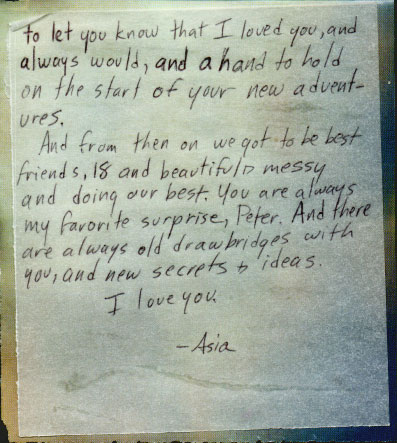 to let you know that I loved you, and
always would, and a hand to hold
on the start of your new advent-
ures.
And from then on we got to be best
friends, 18 and beautifully messy
and doing our best. You are always
my favorite surprise, Peter. And there
are always old drawbridges with
you, and new secrets & ideas.
I love you.
-Asia